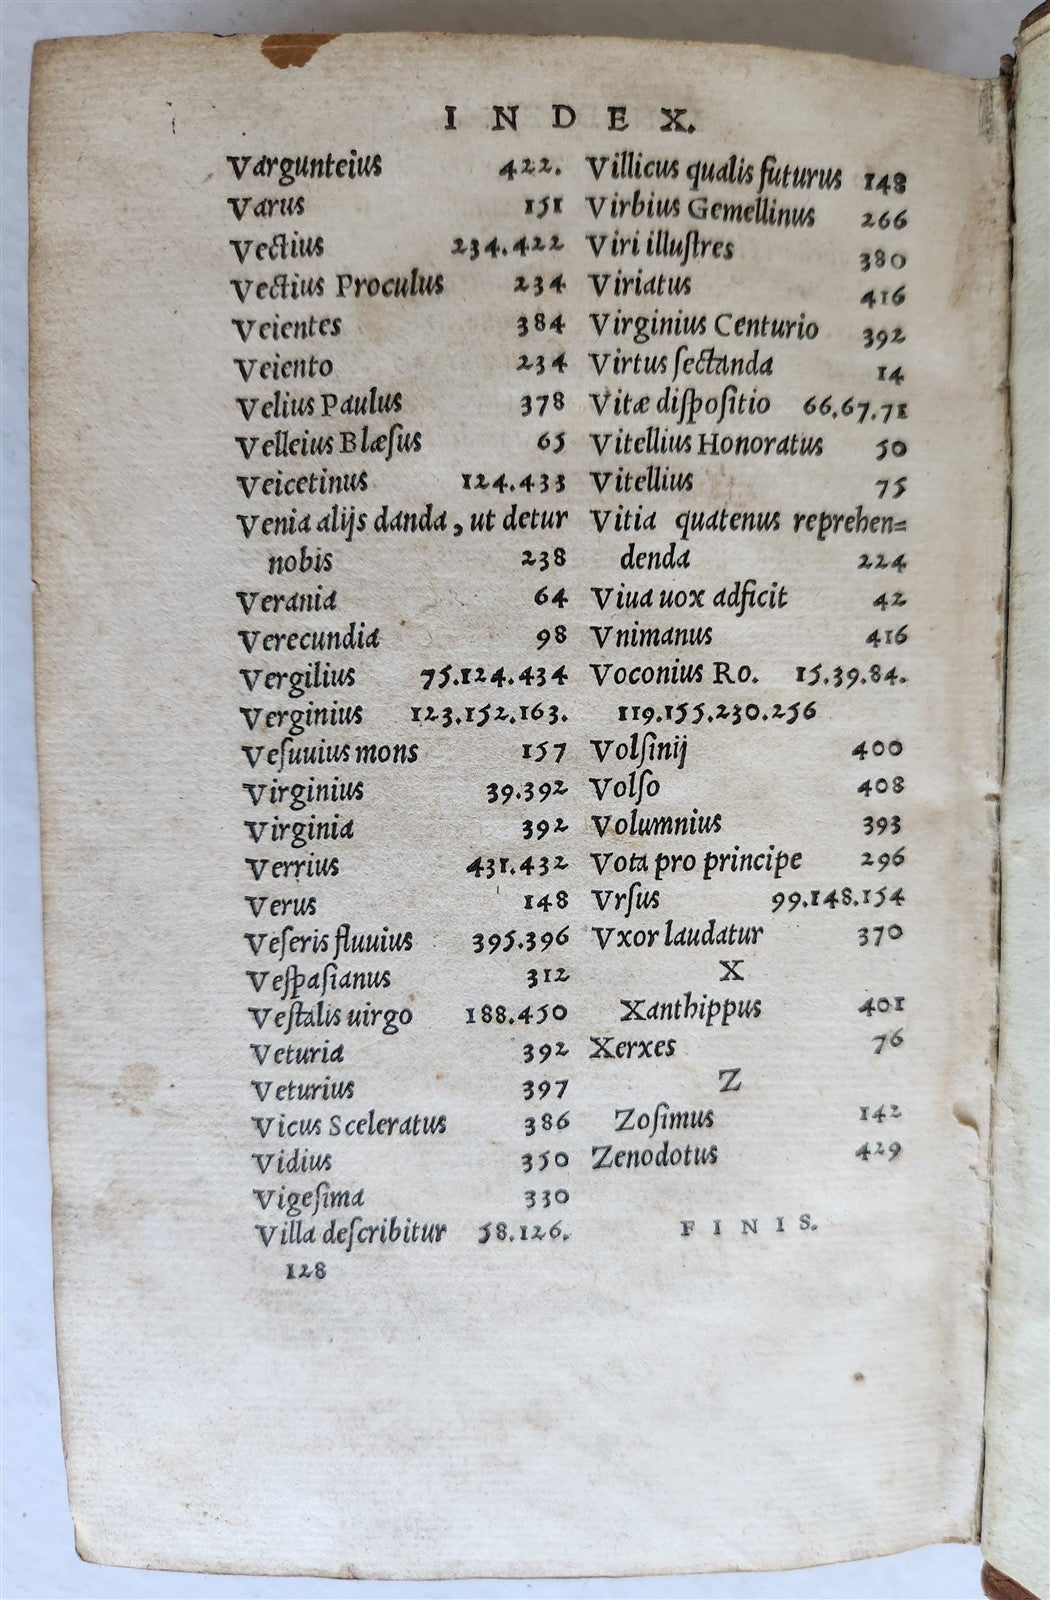 INDEX.
Vargunteius 422.
Varus 151
Vectius 234.422
Vectius Proculus 234
Veientes 384
Veiento 234
Velius Paulus 378
Velleius Blæſus 65
Veicetinus 124.433
Venia alijs danda, ut detur
nobis 238
Verania 64
Verecundia 98
Vergilius 75.124.434
Verginius 123.152.163.
Veſuuius mons 157
Virginius 39.392
Virginia 392
Verrius 431.432
Verus 148
Veſeris fluuius 395.396
Veſpaſianus 312
Veſtalis uirgo 188.450
Veturia 392
Veturius 397
Vicus Sceleratus 386
Vidius 350
Vigeſima 330
Villa deſcribitur 58.126.
128
Villicus qualis futurus 148
Virbius Gemellinus 266
Viri illuſtres 380
Viriatus 416
Virginius Centurio 392
Virtus ſectanda 14
Vitæ diſpoſitio 66.67.71
Vitellius Honoratus 50
Vitellius 75
Vitia quatenus reprehen=
denda 224
Viua uox adficit 42
Vnimanus 416
Voconius Ro. 15.39.84.
119.155.230.256
Volſinij 400
Volſo 408
Volumnius 393
Vota pro principe 296
Vrſus 99.148.154
Vxor laudatur 370
X
Xanthippus 401
Xerxes 76
Z
Zoſimus 142
Zenodotus 429
FINIS.